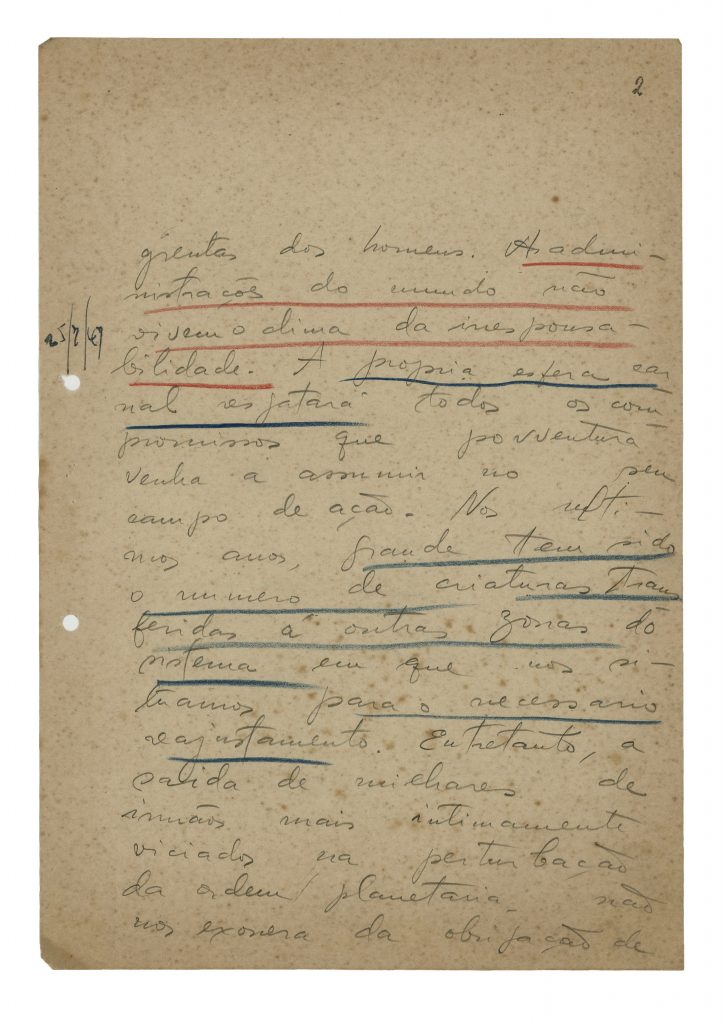 2
grentas dos homens. As admi-
nistrações do mundo não
vivem o clima da irresponsa-
25/7/47
bilidade. A propria esfera car
nal resgatará todos os com-
promissos que porventura
venha a assumir no seu
campo de ação. Nos ulti-
mos anos, grande tem sido
o numero de criaturas trans
feridas á outras zonas do
sistema em que nos si-
tuamos para o necessario
reajustamento. Entretanto, a
saida de milhares de
irmãos mais intimamente
viciados na perturbação
da ordem planetaria, não
nos exonera da obrigação de